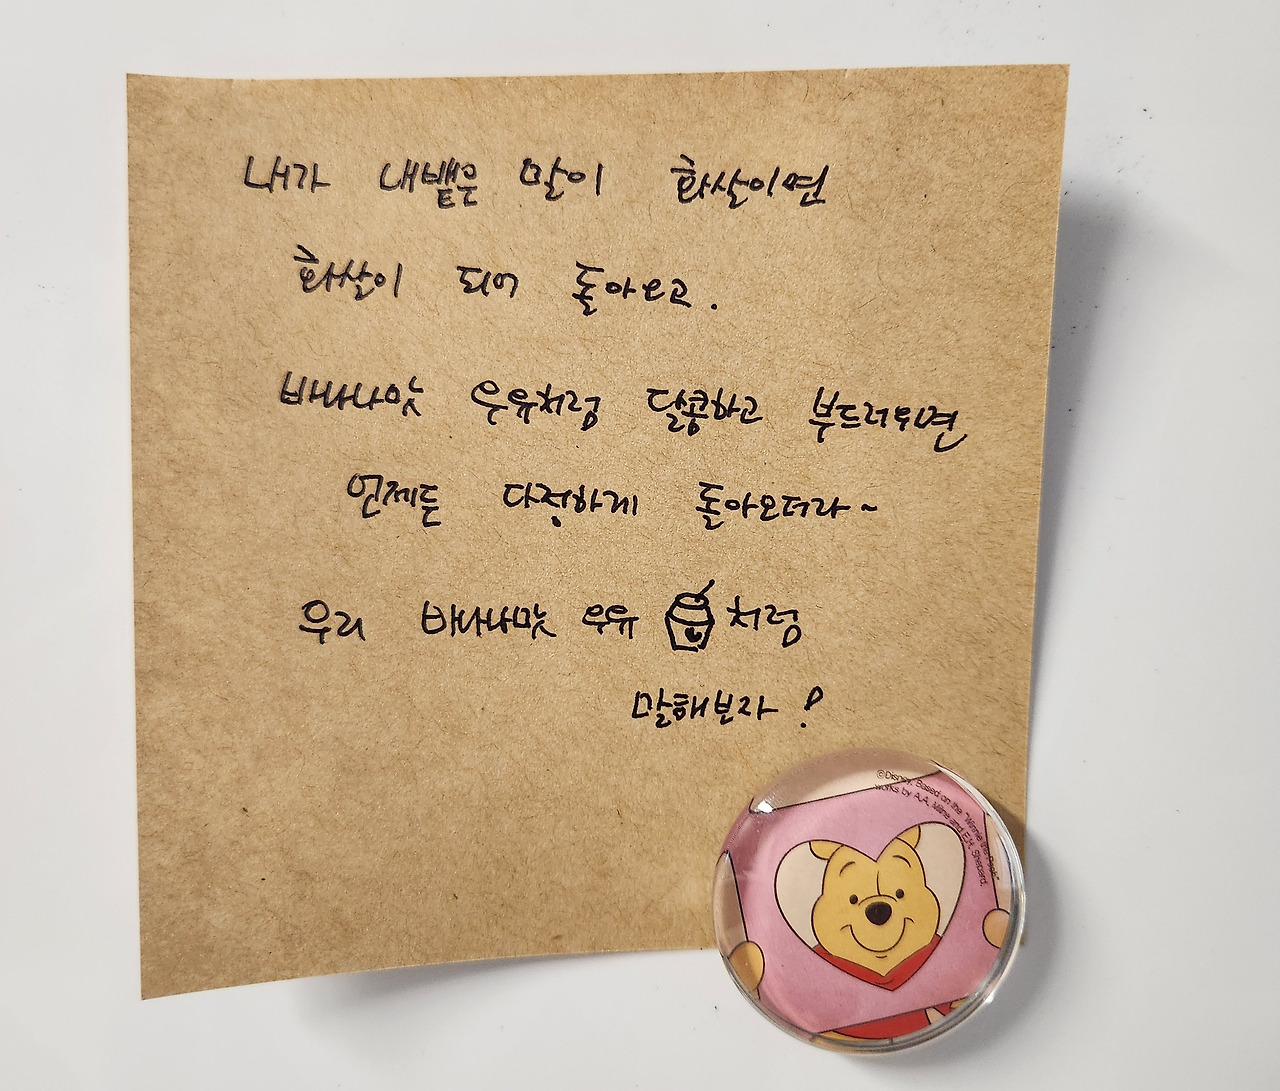 내가 내뱉은 말이 화살이면
화살이 되어 돌아오고.
바나나맛 우유처럼 달콤하고 부드러우면
언제든 다정하게 돌아오더라~
우리 바나나맛 우유 처럼
말해보자!
©Disney. Based on the "Winnie the Pooh"
works by A.A. Milne and E.H. Shepard.